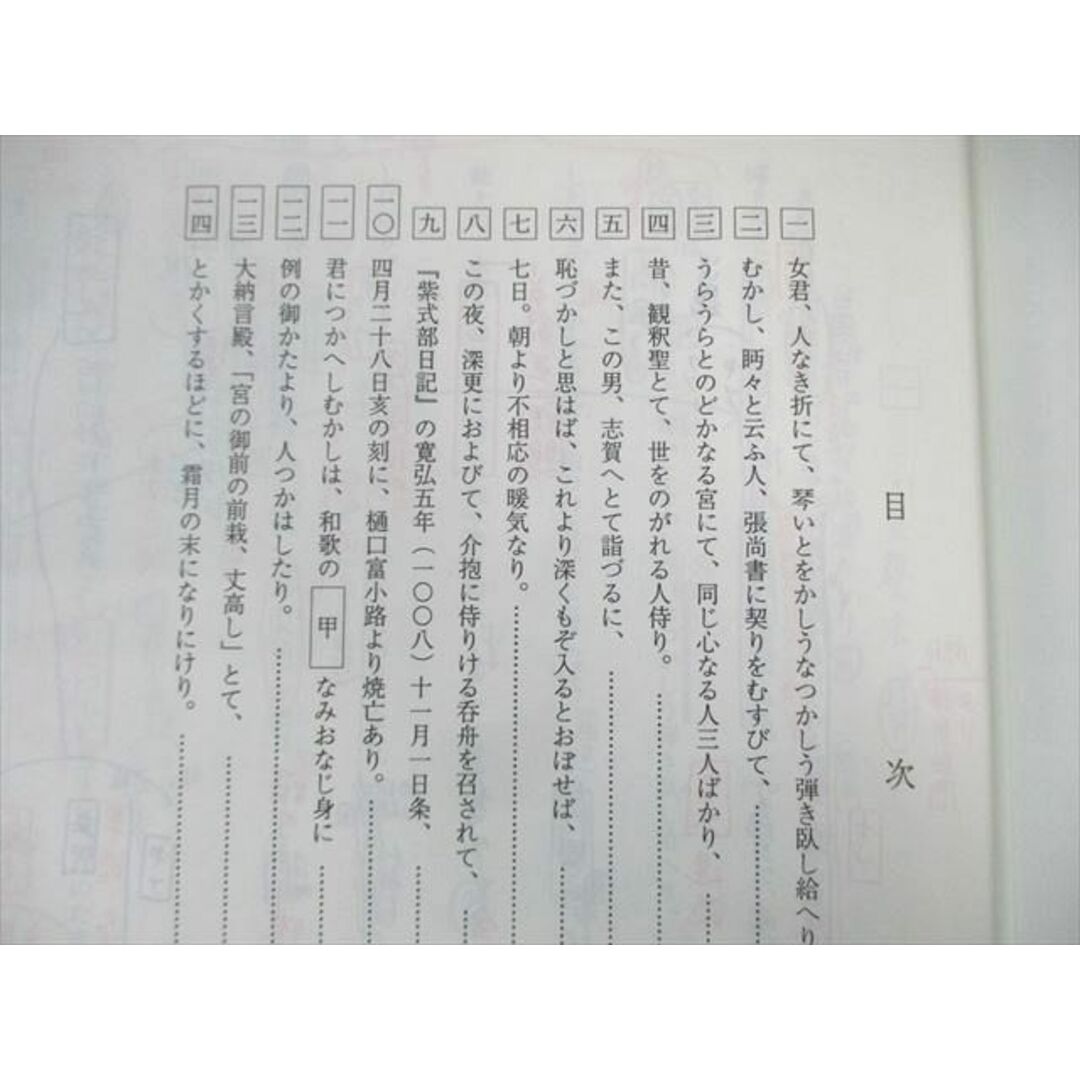 目次
一 女君、人なき折にて、琴いとをかしうなつかしう弾き臥し給へり
二 むかし、眄々と云ふ人、張尚書に契りをむすびて、
三 うらうらとのどかなる宮にて、同じ心なる人三人ばかり、
四 昔、観釈聖とて、世をのがれる人侍り。
五 また、この男、志賀へとて詣づるに、
六 恥づかしと思はば、これより深くもぞ入るとおぼせば、
七 七日。朝より不相応の暖気なり。
八 この夜、深更におよびて、介抱に侍りける呑舟を召されて、
九 『紫式部日記』の寛弘五年（一〇〇八）十一月一日条、
一〇 四月二十八日亥の刻に、樋口富小路より焼亡あり。
一一 君につかへしむかしは、和歌の 甲 なみおなじ身に
一二 例の御かたより、人つかはしたり。
一三 大納言殿、「宮の御前の前栽、丈高し」とて、
一四 とかくするほどに、霜月の末になりにけり。